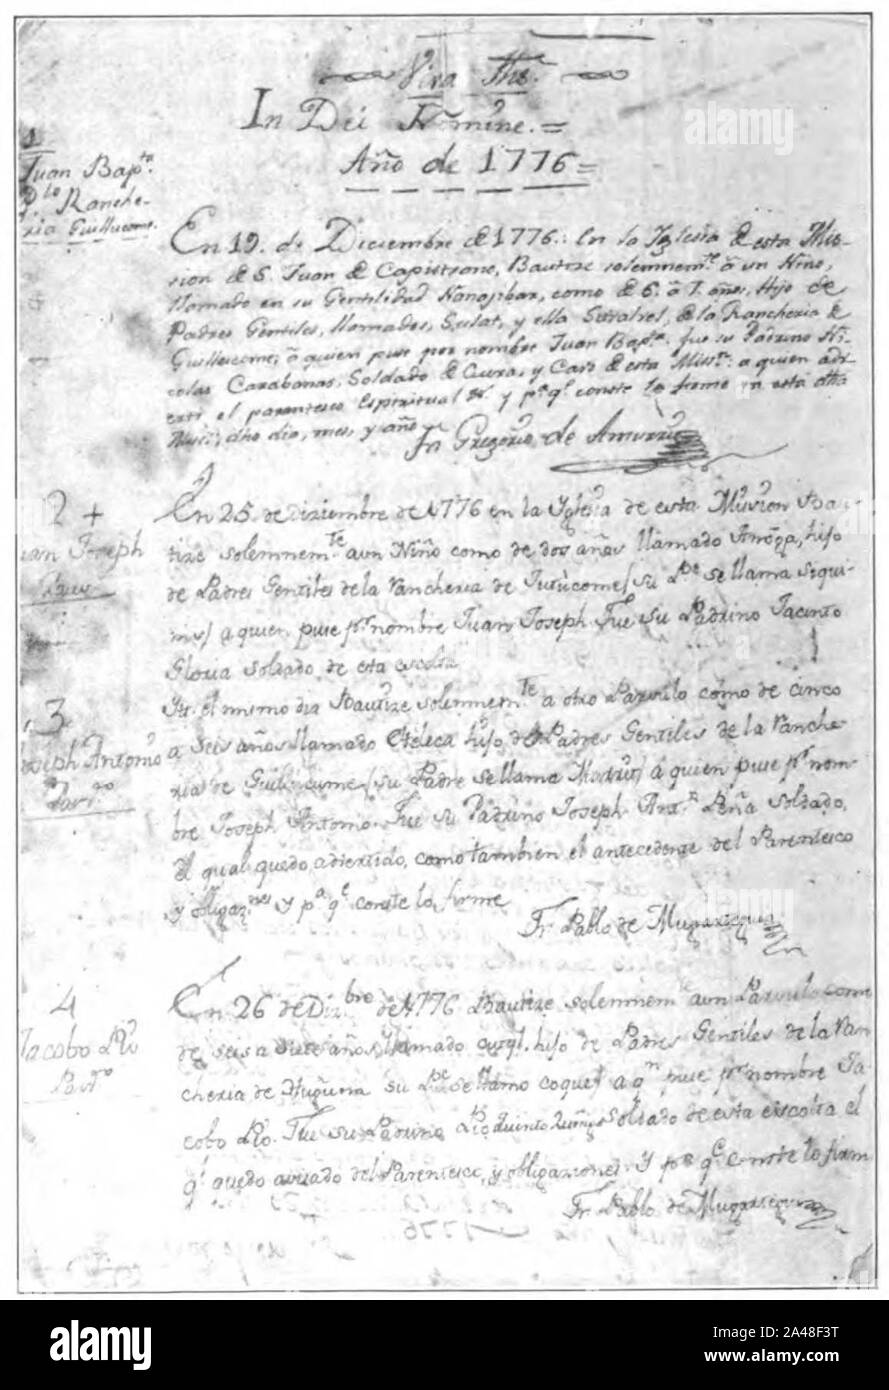 Viva Jhs.
In Dei Nomine.=
Año de 1776=
1
Juan Bap.ta
P.lo Ranche-
ria Guillucome.
En 19. de Diciembre de 1776.: En la Iglesia de esta Mis-
sion de S. Juan de Capistrano, Bautize solemnem.te â un Niño,
llamado en su Gentilidad Nanajibar, como de 6. â 7. años, Hijo de
Padres Gentiles, llamados, y ella de la Rancheria de
Guillucome, â quien puse por nombre Juan Bap.ta fue su Padrino Ni-
colas Carabanas, Soldado de Cuera, y Cavo de esta Miss.n: a quien adv-
erti el parentesco espiritual &. y p.a q.e conste lo firmo en esta dha
Miss.n dho dia, mes, y año
Fr Gregorio de Amurrio
2 +
Juan Joseph
Parv.o
En 25 de Diziembre de 1776 en la Iglesia de esta Mission Bau-
tize solemnem.te a un Niño como de dos años llamado hijo
de Padres Gentiles de la rancheria de (su P.e se llama Sequi-
) a quien puse p.r nombre Juan Joseph. Fue su Padrino Jacinto
Gloria soldado de esta escolta
3
Joseph Antonio
Parv.o
Yt. el mismo dia Bautize solemnem.te a otro Parvulo como de cinco
a seis años llamado hijo de Padres Gentiles de la ranche-
ria de (su Padre se llama ) a quien puse p.r nom-
bre Joseph Antonio. Fue su Padrino Joseph Ant.o Peña Soldado,
el qual quedo advertido, como tambien el antecedente del Parentesco
y obligaz.nes y p.a q.e conste lo firme
Fr. Pablo de Mugartegui
4
Jacobo Pio
Parv.o
En 26 de Diz.bre de 1776 Bautize solemnem.te a un Parvulo como
de seis a siete años, llamado hijo de Padres Gentiles de la ran-
cheria de su P.e se llamo a q.n puse p.r nombre Ja-
cobo Pio. Fue su Padrino Pio Quinto Zuñiga Soldado de esta escolta el
q.l quedo avisado del Parentesco, y obligaziones. Y p.a q.e conste lo firm
Fr. Pablo de Mugartegui
alamy
Image ID: 2A48F3T
www.alamy.com